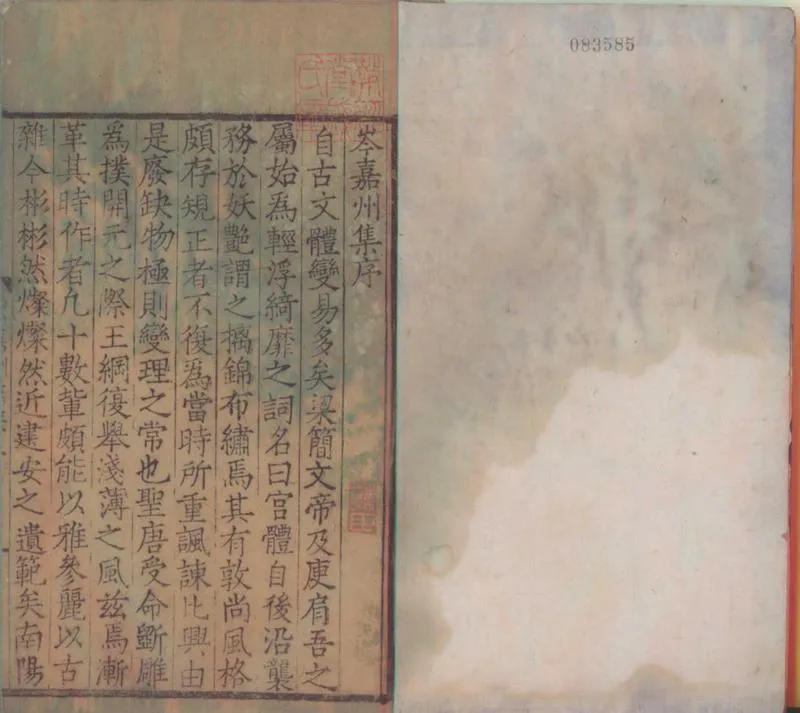 083585
岑嘉州集序
自古文體變易多矣梁簡文帝及庾肩吾之
屬始為輕浮綺靡之詞名曰宮體自後沿襲
務於妖艷謂之摛錦布繡焉其有敦尚風格
頗存規正者不復為當時所重諷諫比興由
是廢缺物極則變理之常也聖唐受命斵雕
為撲開元之際王綱復舉淺薄之風茲焉漸
革其時作者凢十數軰頗能以雅參麗以古
雜今彬彬然燦燦然近建安之遺範矣南陽